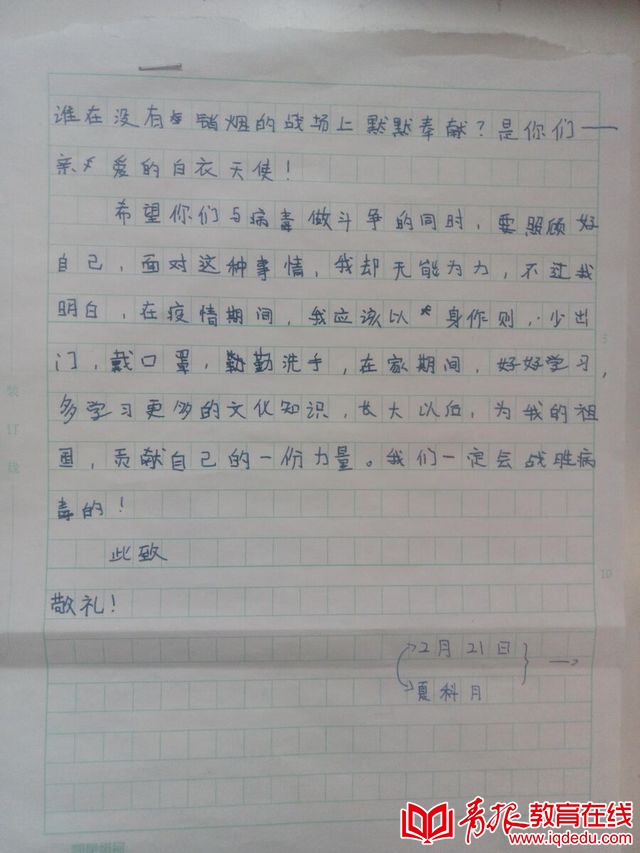 谁在没有硝烟的战场上默默奉献？是你们——
亲爱的白衣天使！
希望你们与病毒做斗争的同时，要照顾好
自己，面对这种事情，我却无能为力，不过我
明白，在疫情期间，我应该以身作则，少出
门，戴口罩，勤洗手，在家期间，好好学习，
多学习更多的文化知识，长大以后，为我的祖
国，贡献自己的一份力量。我们一定会战胜病
毒的！
此致
敬礼！
2月21日
夏科月
装订线
5
10
青报教育在线
www.iqdedu.com